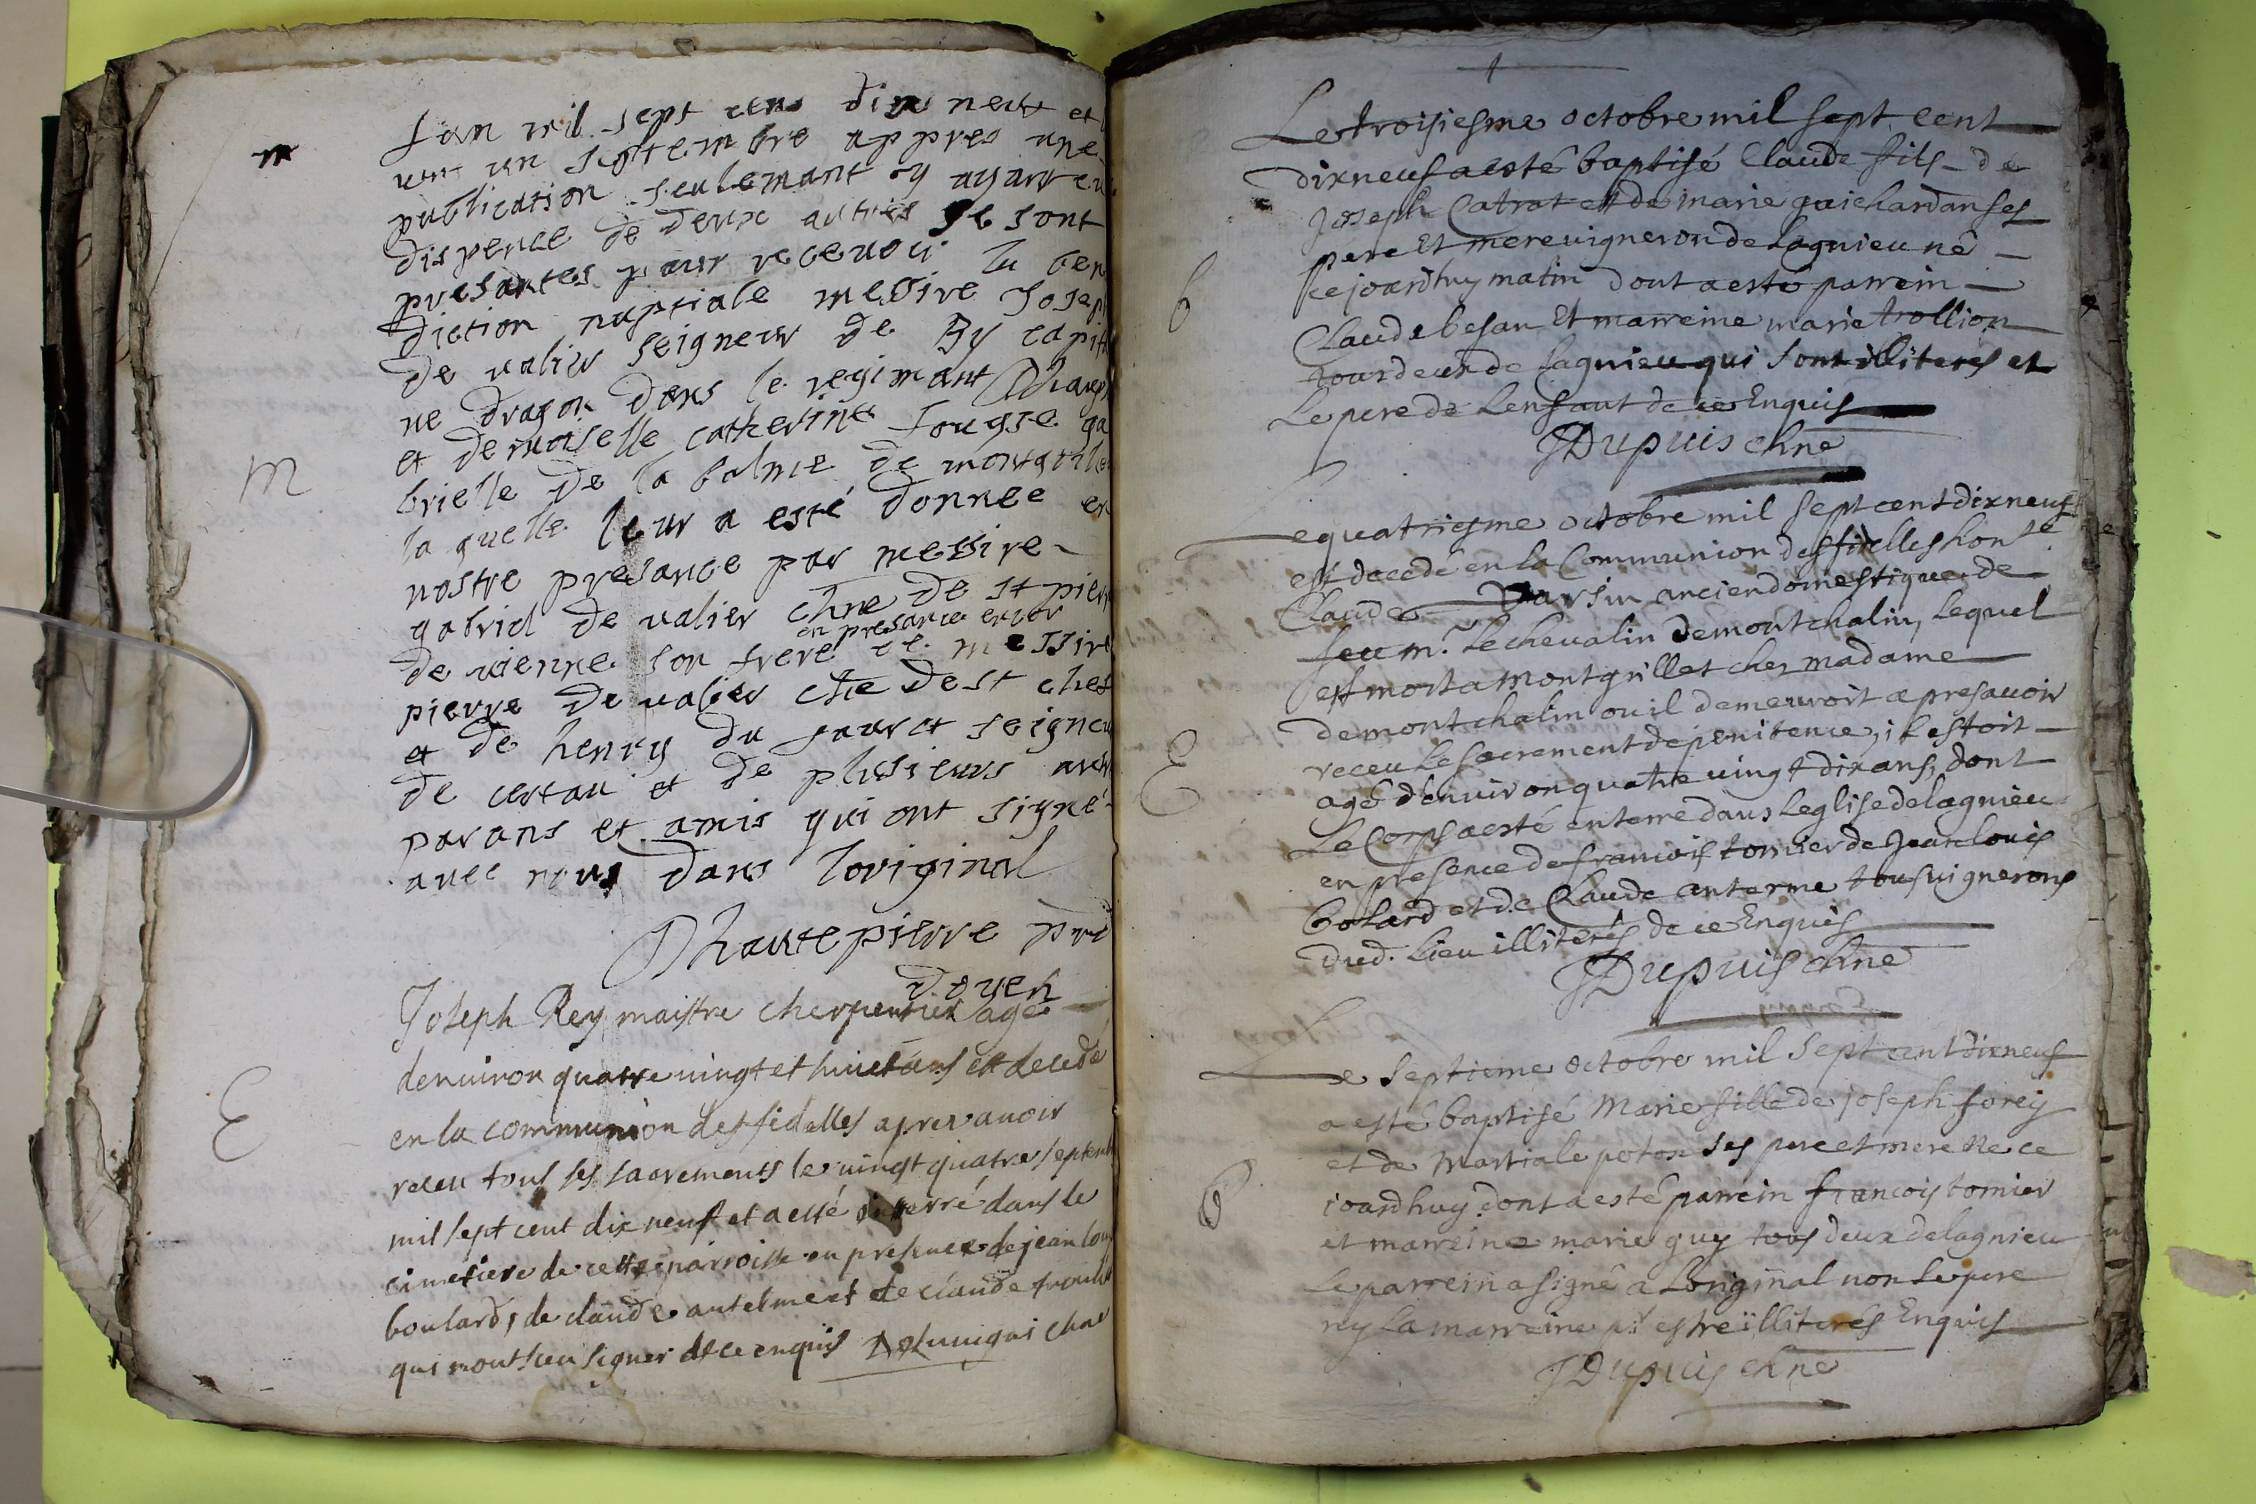 Lan mil sept cens dix neuf et
vint un septembre appres une
publication seulemant y ayant eu
dispence de deux autres se sont
presantes pour recevoir la bene
diction nuptiale messire Joseph
de valier seigneur de By capit
ne dragon dans le regimant
et demoiselle catherine Louyse ga
brielle de la balme de
la quelle leur a esté donnee en
nostre presance par messire
gabriel de valier chne de st pierre
en presance encor
de vienne son frere de messire
pierre de valier chne de st chef
et de henry du seigneur
de et de plusieurs autres
parans et amis qui ont signé
avec nous dans loriginal
Dhautepierre
doyen
M
Joseph Rey maistre cherpentier agé
denuiron quatre uingt et huict ans est decedé
en la communion des fidelles apres auoir
receu tous ses sacrements le uingt quatre septemb
mil sept cent dix neuf et a esté enterré dans le
cimetiere de cette parroisse en presence de jean louis
boulard, de claude antelme et de claude
qui nont sceu signer de ce enquis chne
E
Le troisiesme octobre mil sept cent
dixneuf a esté baptisé Claude fils de
Joseph Catrat et de marie guichardan ses
pere et mere uigneron de Lagnieu né
ce jourdhuy matin dont a esté parrein
Claude besan et marreine marie trollion
tous deux de lagnieu qui sont illiteres et
Le pere de Lenfant de ce Enquis
JDupuis chne
b
Le quatriesme octobre mil sept cent dixneuf
est decedé en la Communion des fidelles honte
Claude Varsin ancien domestique de
feu mr. Le chevalin de montchalin, lequel
est mort a montgrillet ches madame
de montchalin ou il demeuroit apres auoir
receu Le sacrement de penitence, il estoit
agé denuiron quatre uingt dix ans, dont
Le Corps a esté enterré dans Leglise de lagnieu
en presence de francois tornier de Jean louis
bolard et de Claude anterme tous uignerons
dud. Lieu illiterés de ce Enquis
JDupuis chne
E
Le septieme octobre mil sept cent dixneuf
a esté baptisé Marie fille de joseph forey
et de Martiale poton ses pere et mere né ce
jourdhuy dont a esté parrein francois tornier
et marreine marie guy tous deux de lagnieu
Le parrein a signé a Loriginal non Le pere
ny La marreine pr estre illiterés Enquis
JDupuis chne
B